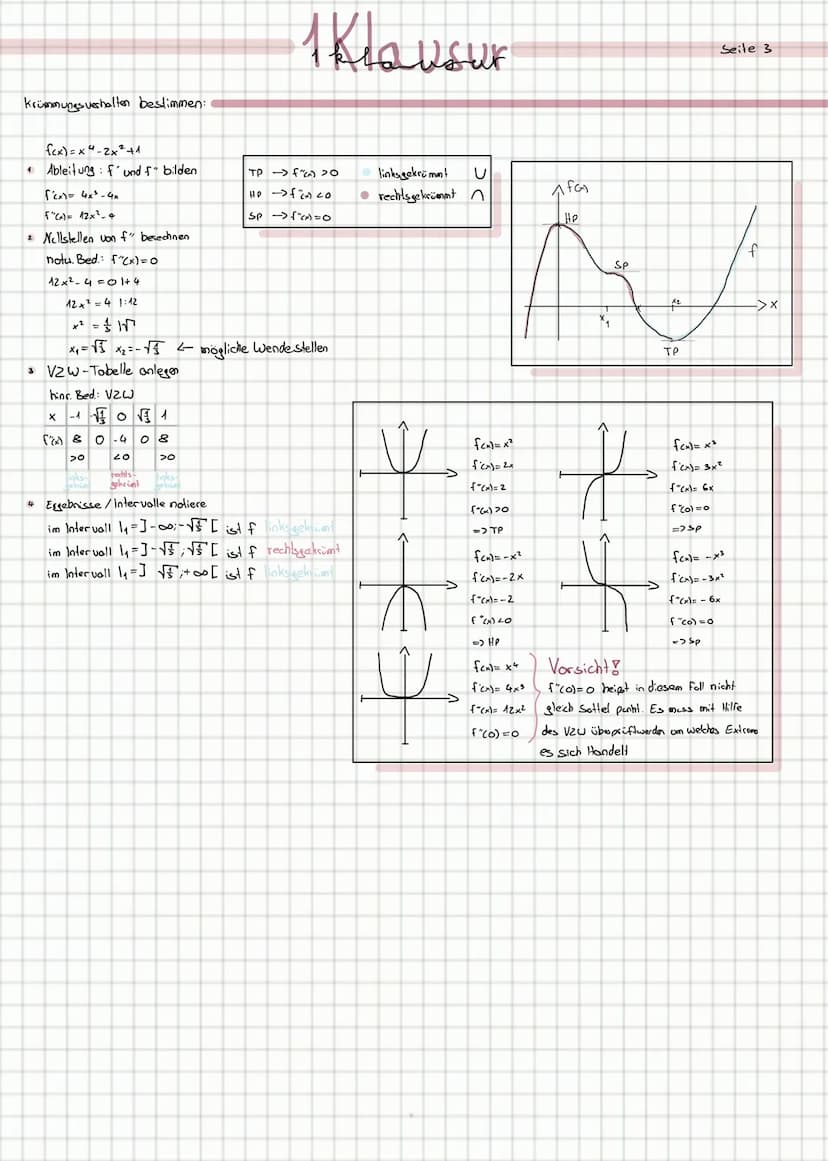 1Klausur
1 klausur
Seite 3
Krümmungsverhalten bestimmen:
f(x)=x⁴-2x²+1
1 Ableitung: f' und f'' bilden
f'(x)= 4x³-4x
f''(x)= 12x²-4
2 Nullstellen von f'' berechnen
notw. Bed.: f''(x)=0
12x²-4=0 |+4
12x²=4 |:12
x² = 1/3 |√
x₁=√1/3 x₂=-√1/3 ← mögliche Wendestellen
3 VZW-Tabelle anlegen
hinr. Bed.: VZW
x -1 -√1/3 0 √1/3 1
f''(x) 8 0 -4 0 8
>0 <0 >0
links- rechts- links-
gekrümmt gekrümmt gekrümmt
4 Ergebnisse / Intervalle notiere
im Intervall I₁=]-∞;-√1/3[ ist f linksgekrümmt
im Intervall I₁=]-√1/3;√1/3[ ist f rechtsgekrümmt
im Intervall I₁=] √1/3;+∞[ ist f linksgekrümmt
TP → f''(x) >0
HP → f''(x) <0
SP → f''(x)=0
linksgekrümmt ∪
rechtsgekrümmt ∩
f(x)
HP
SP
f
x₁
x₂
x
TP
f(x)=x²
f'(x)=2x
f''(x)=2
f''(x)>0
=> TP
f(x)= x³
f'(x)= 3x²
f''(x)= 6x
f''(0)=0
=> SP
f(x)=-x²
f'(x)=-2x
f''(x)=-2
f''(x)<0
=> HP
f(x)= -x³
f'(x)=-3x²
f''(x)= -6x
f''(0)=0
=> SP
f(x)= x⁴
f'(x)= 4x³
f''(x)= 12x²
f''(0)=0
Vorsicht!
f''(0)=0 heißt in diesem Fall nicht
gleich Sattel punkt. Es muss mit Hilfe
des VZW überprüft werden um welches Extrema
es sich Handelt